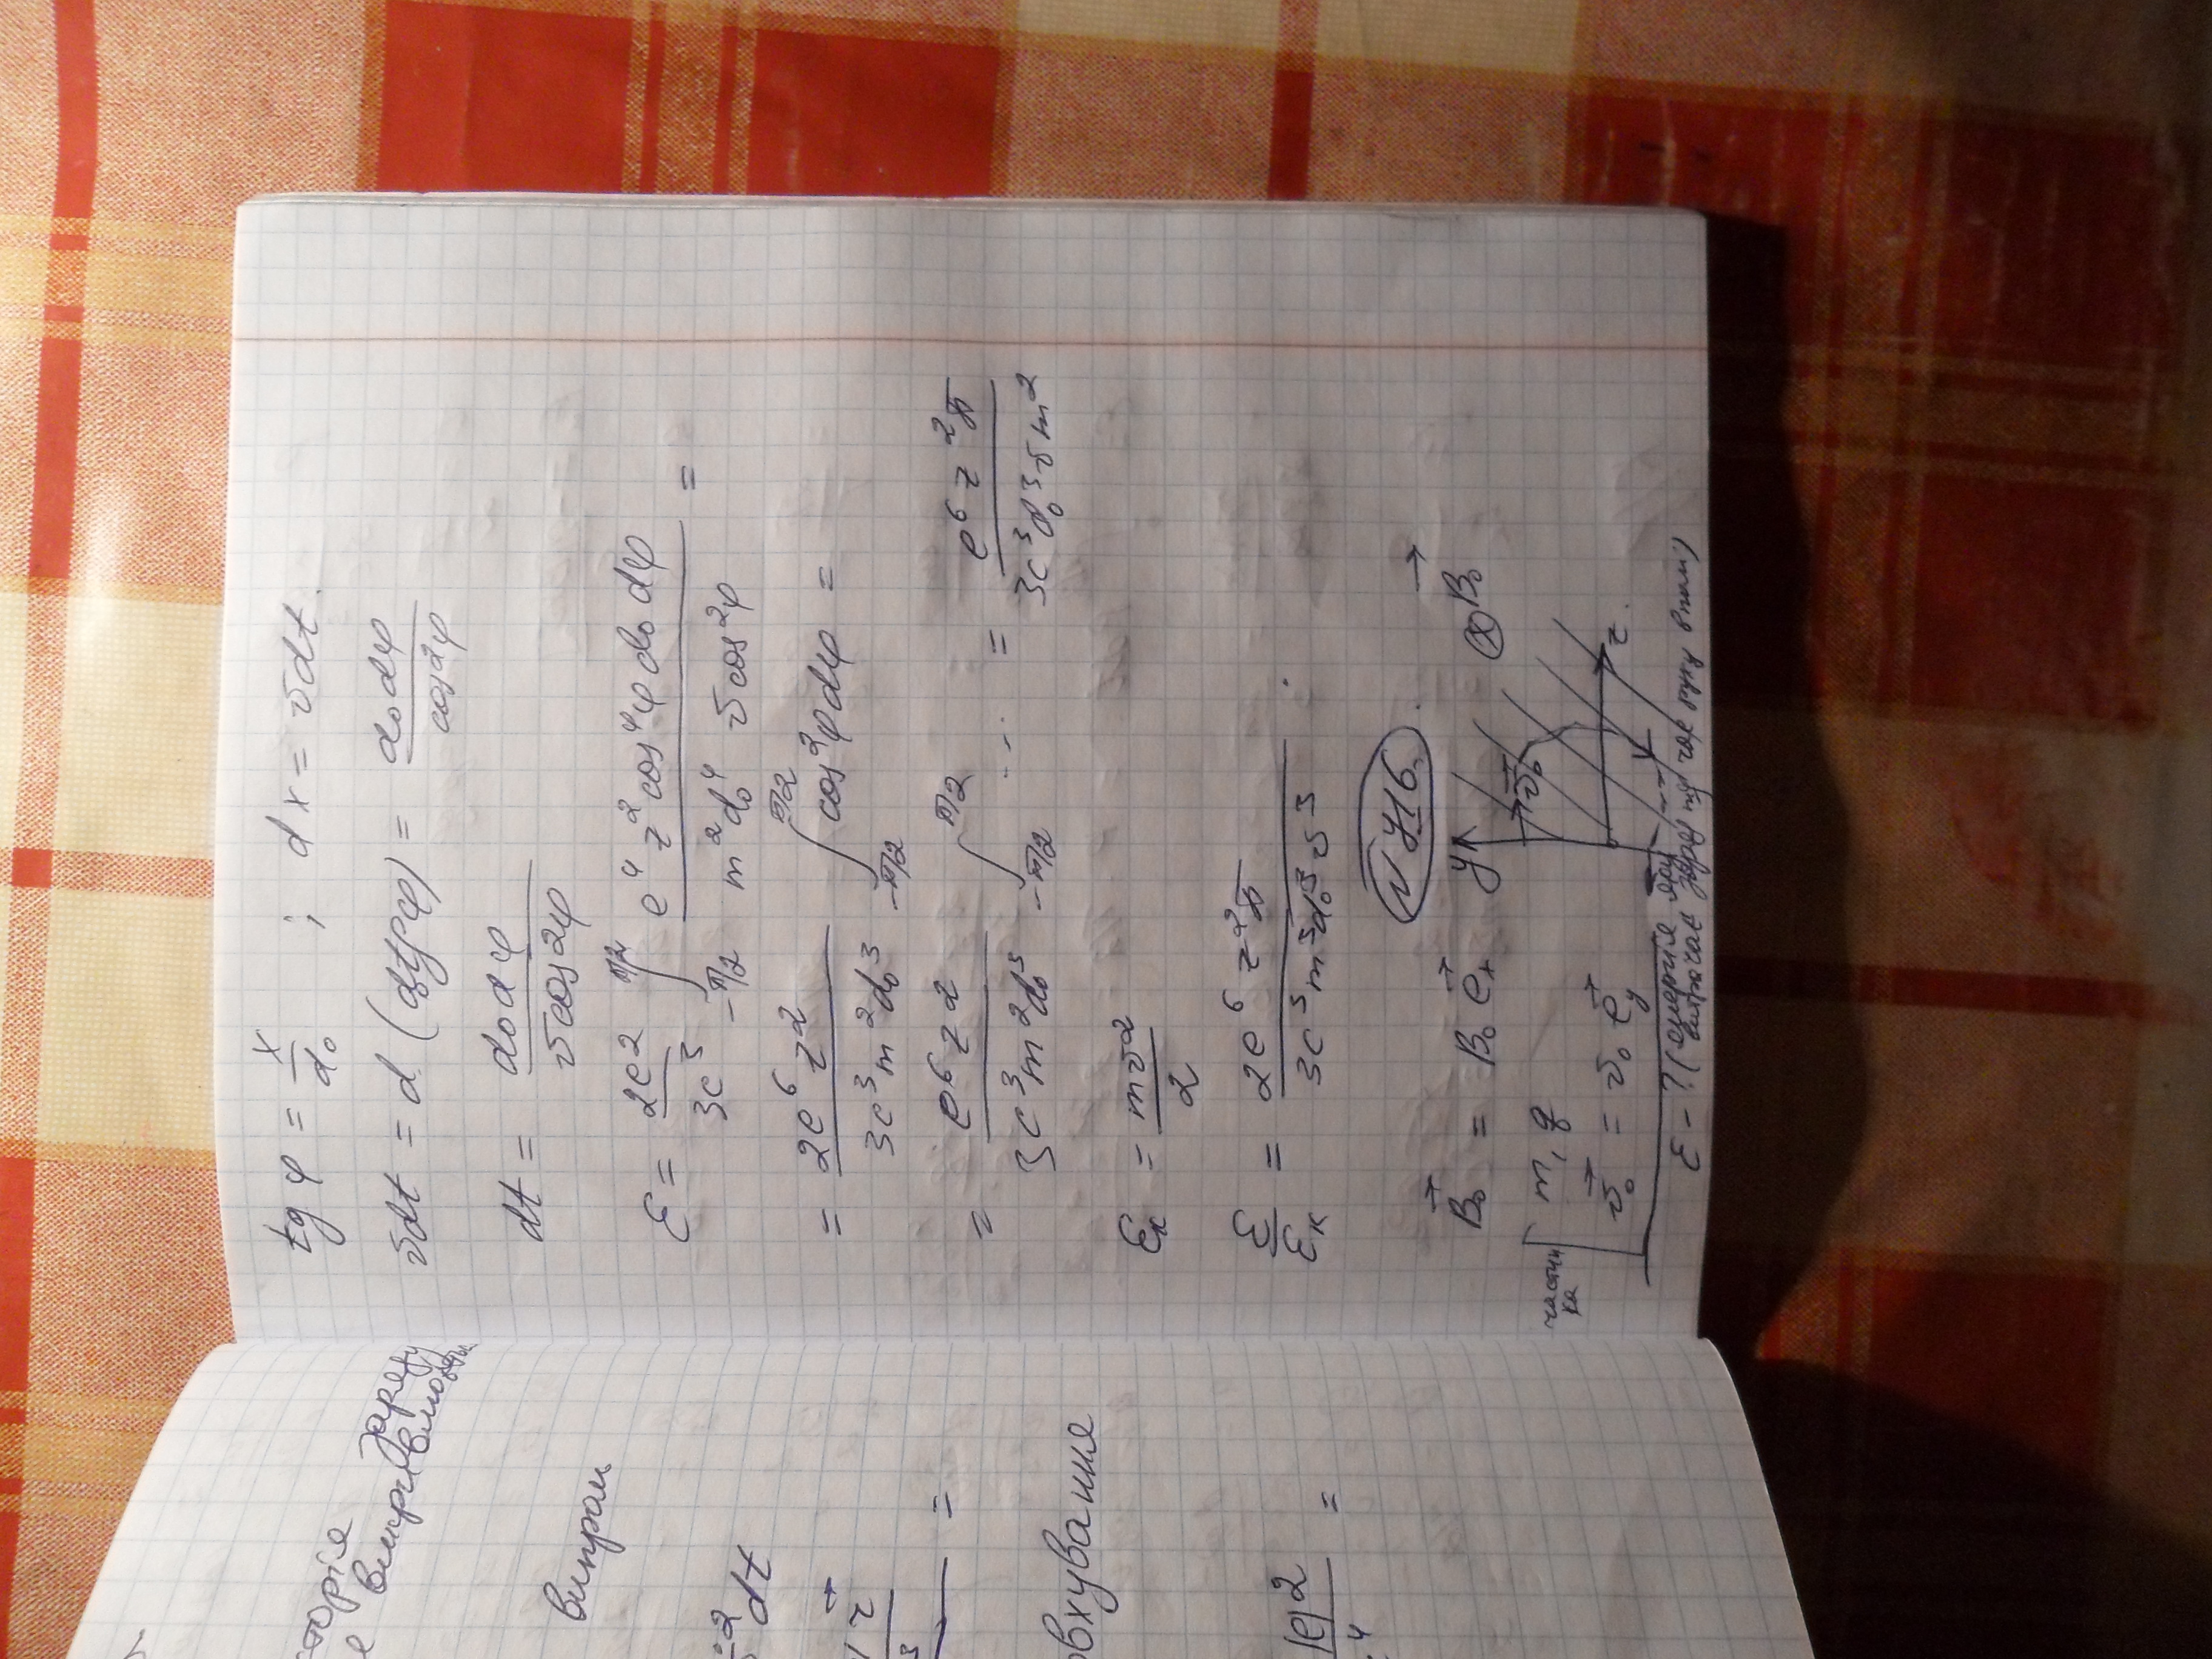 tg φ = x/d₀ ; dx = vdt.
vdt = d(d₀tgφ) = d₀dφ/cos²φ
dt = d₀dφ/vcos2φ
ℰ = 2e2/3c³ ∫_{-π/2}^{π/2} e⁴z²cos⁴φ d₀ dφ / m²d₀⁴ v cos²φ =
= 2e⁶z²/3c³m²d₀³ ∫_{-π/2}^{π/2} cos²φdφ =
= e⁶z2/3c³m²d₀³ ∫_{-π/2}^{π/2} ... = e⁶z²π/3c³d₀³vm²
ℰк = mv²/2
ℰ/ℰк = 2e⁶z²π/3c³m³d₀³v³ .
N У16.
B⃗₀ = B₀e⃗ₓ y ⊗B⃗₀
частинка m, q v⃗₀
v⃗₀ = v₀e⃗y z
ℰ - ? (енергія яку
витрачає заряд під час руху в полі)
торія
заряду
випром
² dt
r⃗
=
овхування
|e|2
4 =